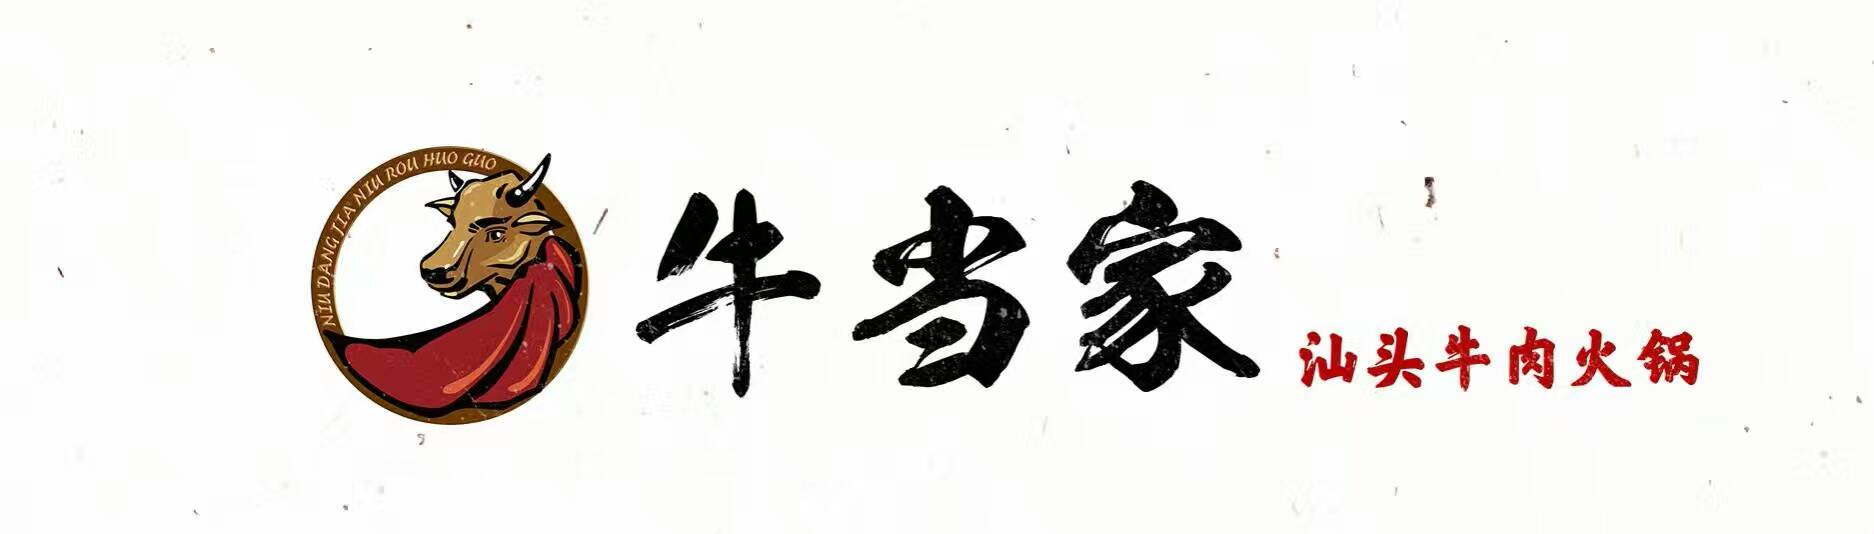 NIU DANG JIA NIU ROU HUO GUO
牛当家
汕头牛肉火锅